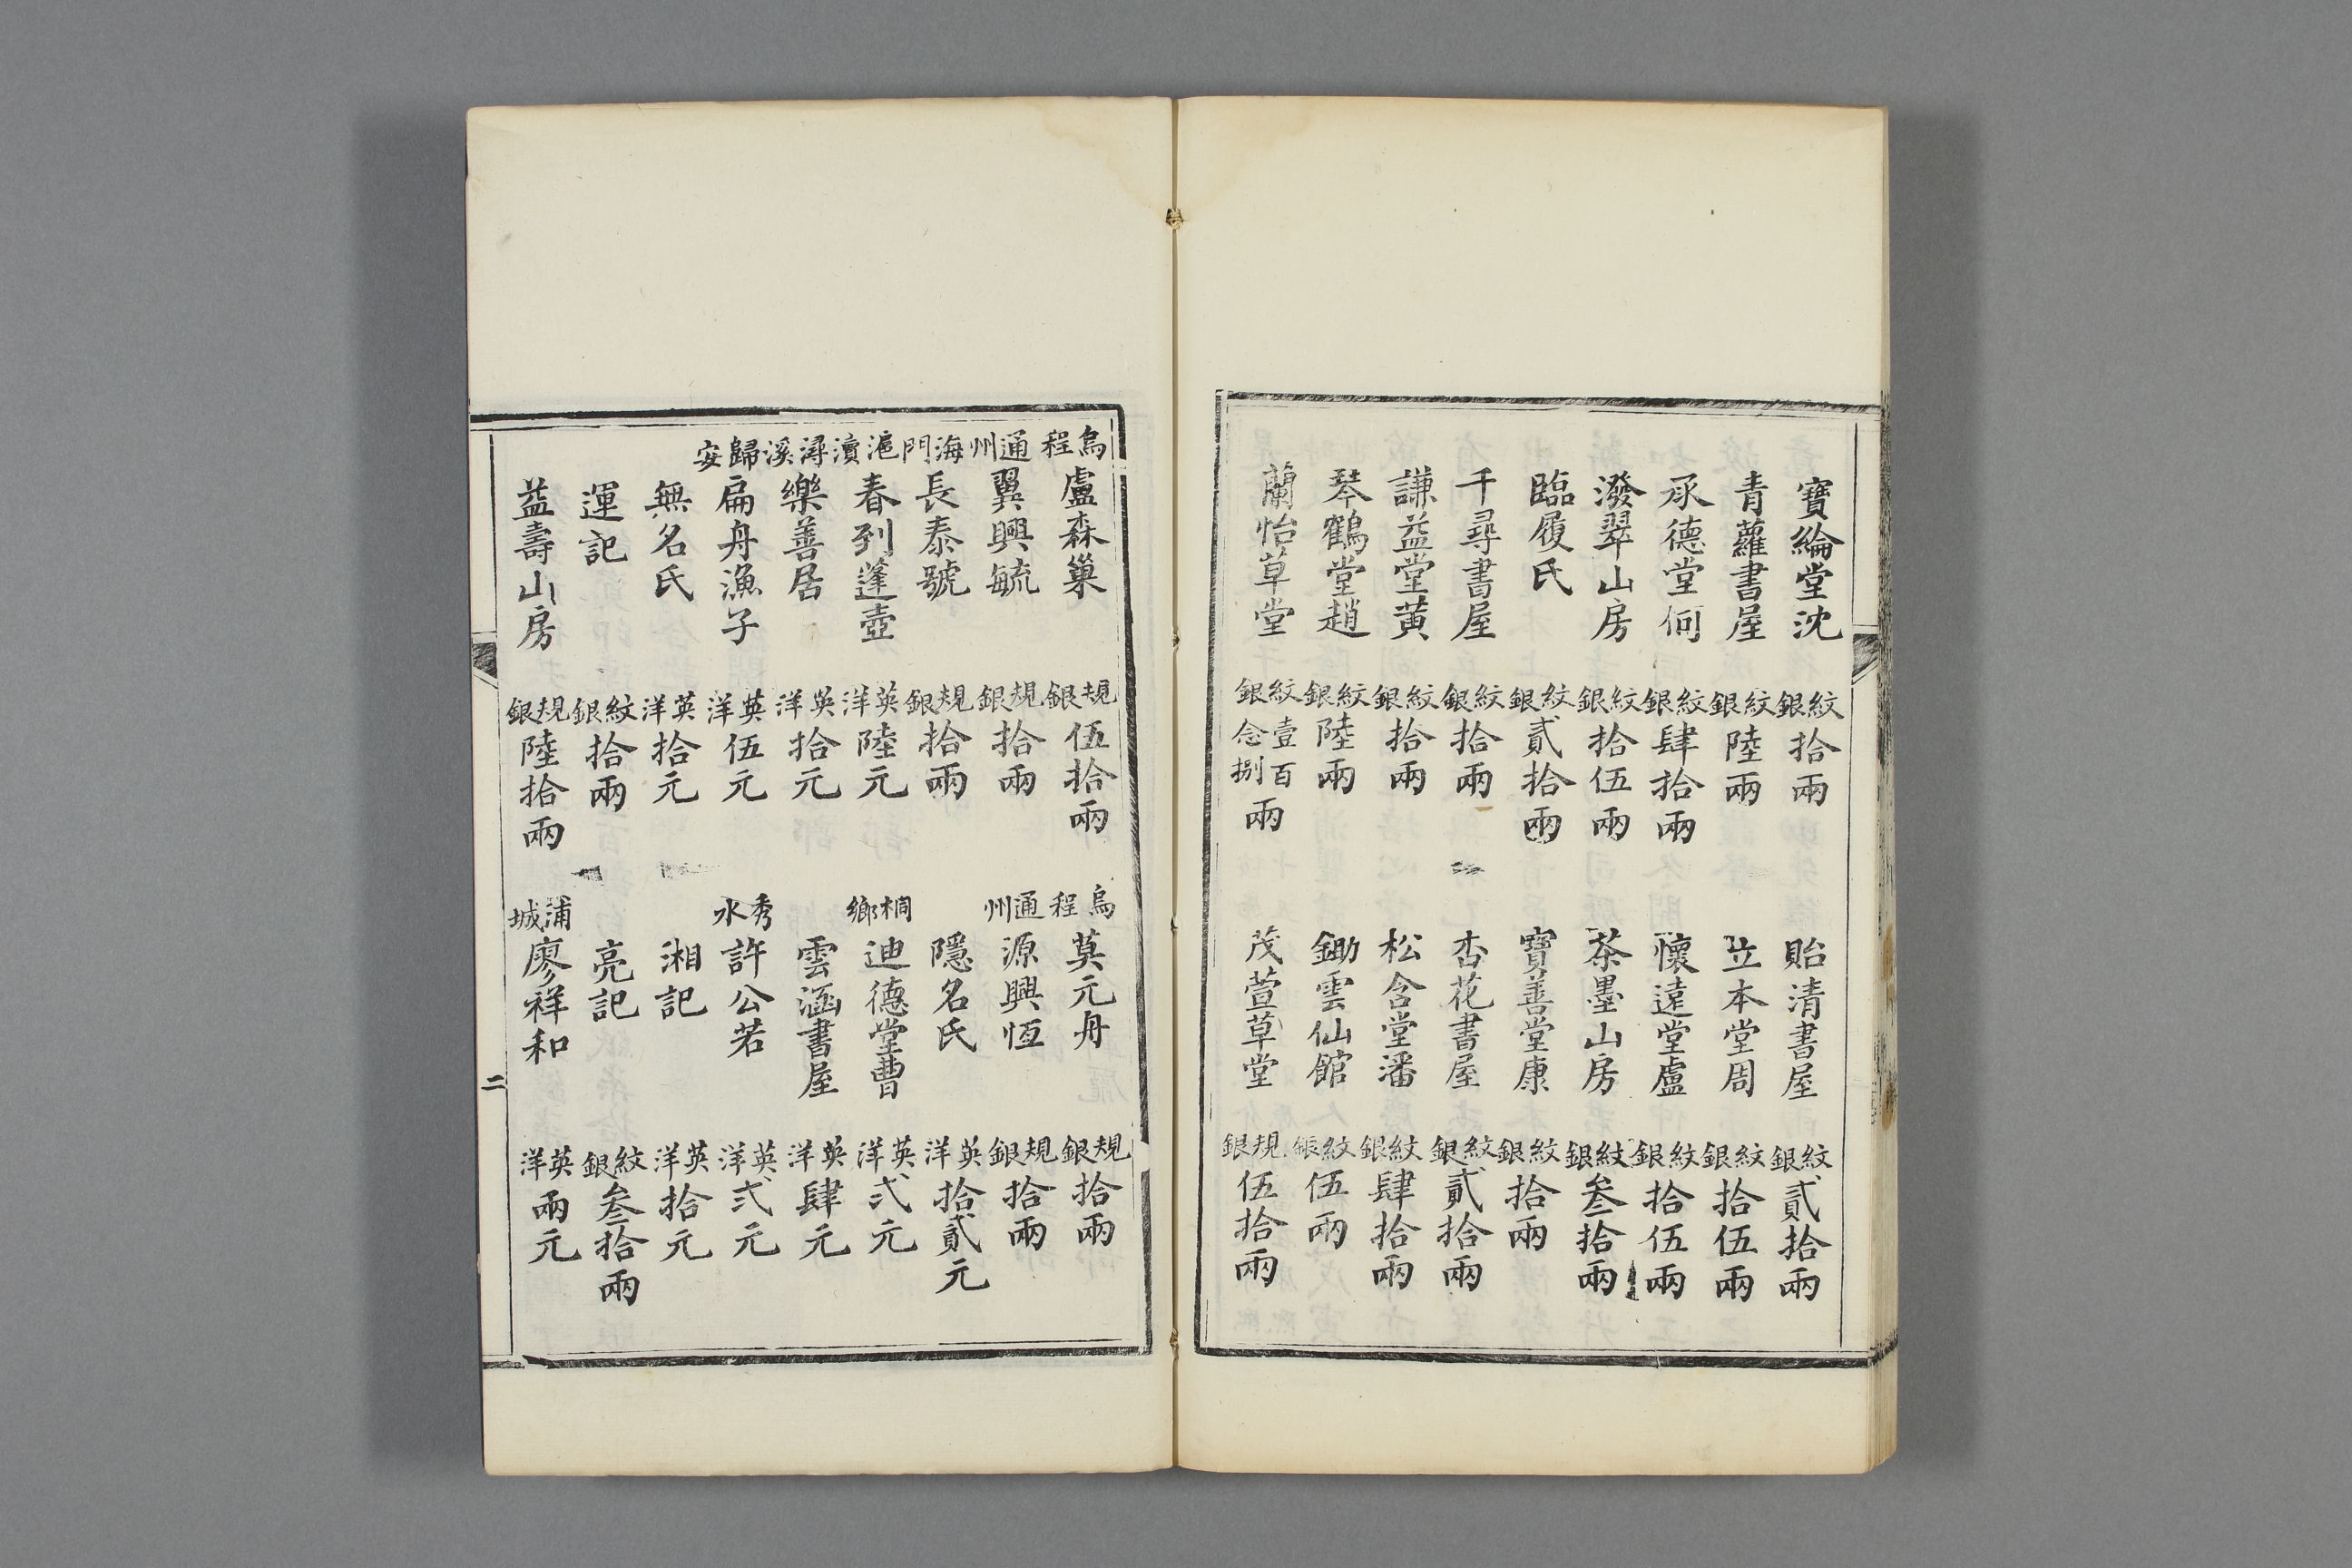 寶綸堂沈 紋銀拾兩 貽清書屋 紋銀貳拾兩
青蘿書屋 紋銀陸兩 立本堂周 紋銀拾伍兩
承德堂何 紋銀肆拾兩 懷遠堂盧 紋銀拾伍兩
潑翠山房 紋銀拾伍兩 茶墨山房 紋銀叁拾兩
臨履氏 紋銀貳拾兩 寶善堂康 紋銀拾兩
千尋書屋 紋銀拾兩 杏花書屋 紋銀貳拾兩
謙益堂黄 紋銀拾兩 松含堂潘 紋銀肆拾兩
琴鶴堂趙 紋銀陸兩 鋤雲仙館 紋銀伍兩
蘭怡草堂 紋銀壹百念捌兩 茂萱草堂 規銀伍拾兩
烏程 盧森巢 規銀伍拾兩 烏程 莫元舟 規銀拾兩
通州 翼興毓 規銀拾兩 通州 源興恆 規銀拾兩
海門 長泰號 規銀拾兩 隱名氏 英洋拾貳元
滬瀆 春到蓬壺 英洋陸元 桐鄉 迪德堂曹 英洋弍元
潯溪 樂善居 英洋拾元 雲涵書屋 英洋肆元
歸安 扁舟漁子 英洋伍元 秀水 許公若 英洋弍元
無名氏 英洋拾元 湘記 英洋拾元
運記 紋銀拾兩 亮記 紋銀叁拾兩
益壽山房 規銀陸拾兩 浦城 廖祥和 英洋兩元
二